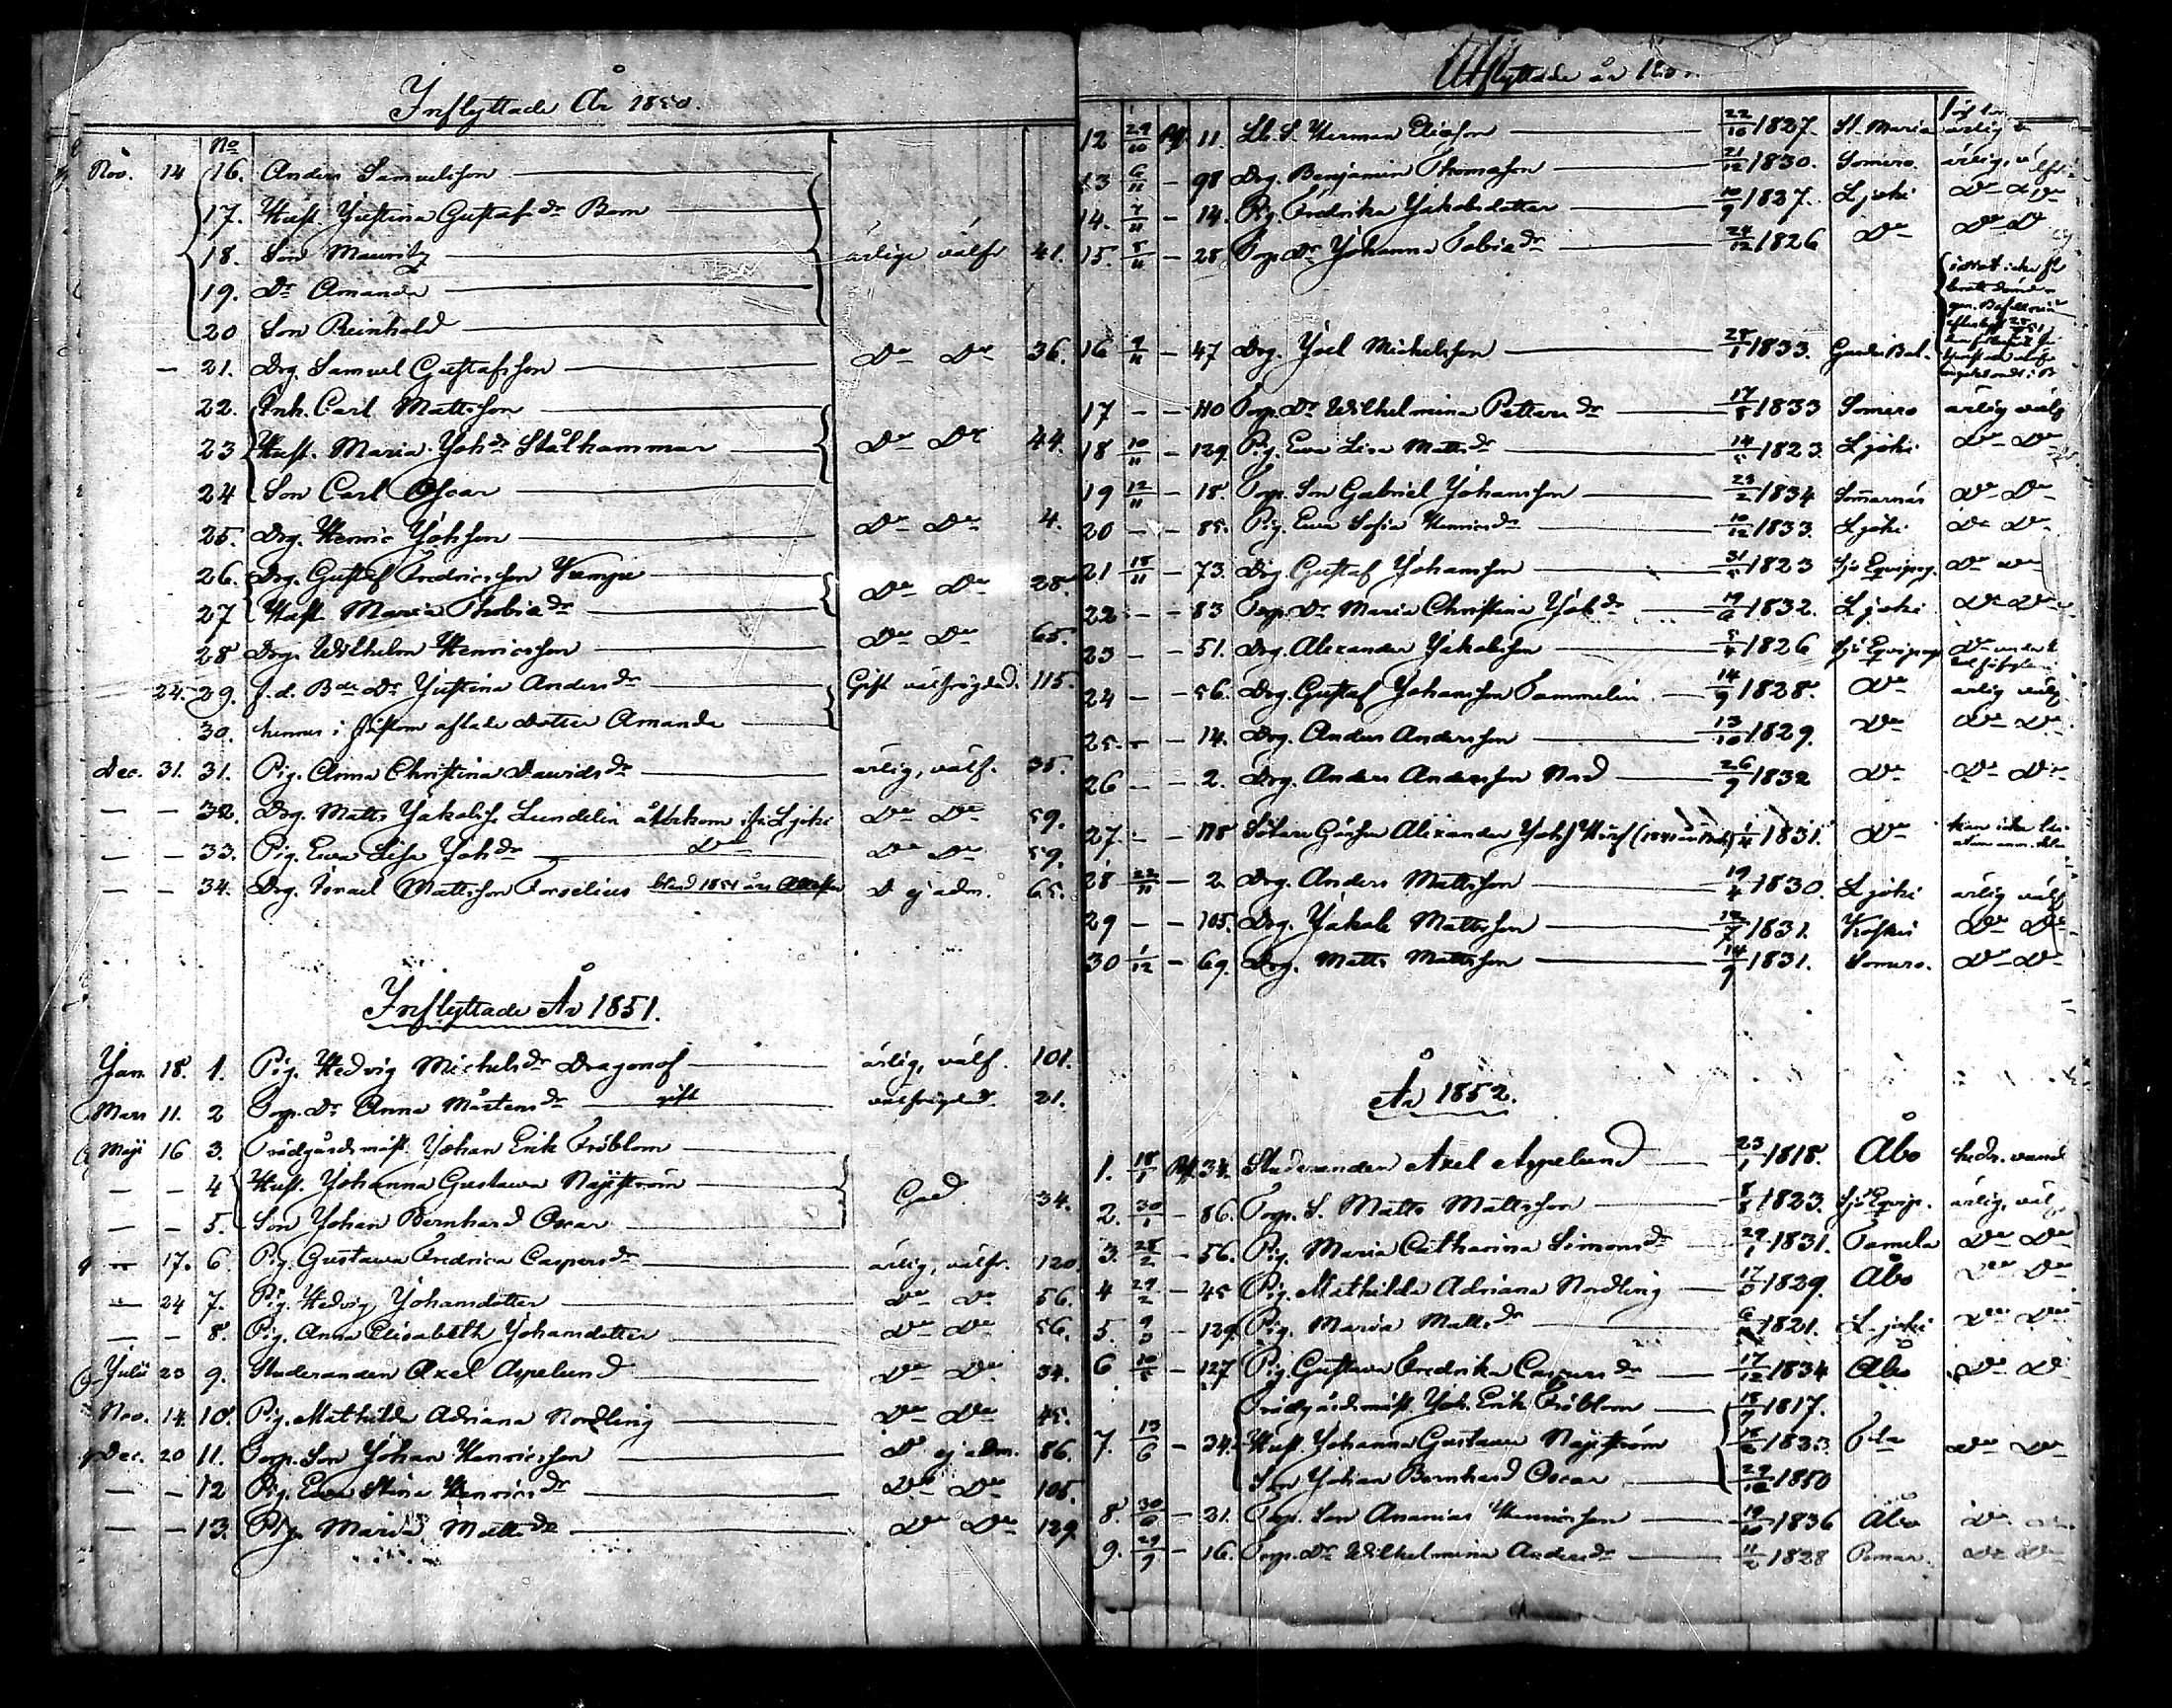 Inflyttade År 1850.
No
Nov. 14 16. Anders Samuelsson
17. Hust. Justina Gustafsdr Bom
18. Son Mauritz ärlige välfr 41.
19. Dr Amanda
20 Son Reinhold
21. Drg. Samuel Gustafsson Do Do 36.
22. Inh. Carl Mattsson
23 Hust. Maria Johdr Stålhammar Do Do 44.
24 Son Carl Oscar
25. Drg. Henric Johsson Do Do 4.
26. Drg. Gustaf Fredricsson
27 Hust Maria Thobiadr Do Do 28.
28 Drg. Wilhelm Henricsson Do Do 65.
24. 29. f.d. Bdr Dr Justina Andersdr Gift välfrägdad. 115.
30. hennes i aflade dotter Amanda
Dec. 31. 31. Pig. Anna Christina Davidsdr ärlig, välf. 35.
— — 32. Drg. Matts Jakobss. Lundelin återkom ifr. Ljoki Do Do 59.
— — 33. Pig. Ewa Lisa Johdr Do Do Do 59.
— — 34. Drg. Israel Mattsson Forselius 1851 års D ej adm. 65.
Inflyttade År 1851.
Jan. 18. 1. Pig. Hedvig Michelsdr Dragonof ärlig, välf. 101.
Mars 11. 2 Torp. Dr Anna Mårtensdr gift välfrägd. 21.
Maji 16 3. Trädgårdsmäst. Johan Erik Fröblom
— — 4 Hust. Johanna Gustava Nyström God 34.
— — 5. Son Johan Bernhard Oscar
— 17. 6 Pig. Gustava Fredrica Caspersdr ärlig, välfr. 120
— 24 7. Pig. Hedvig Johansdotter Do Do 56.
— — 8. Pig. Anna Elisabeth Johansdotter Do Do 56.
Julii 23 9. Studeranden Axel Aspelund Do Do 34.
Nov. 14 10. Pig. Mathilda Adriana Nordling Do Do 45.
Dec. 20 11. Torp. Son Johan Henricsson D ej adm. 86.
— — 12 Pig. Ewa Stina Henricsdr Do Do 105.
— — 13. Pig. Maria Mattsdr Do Do 129
Utflyttade år
12 29/10 11. Herman Eliasson 22/10 1827. St. Maria ärlig
13 6/11 — 98 Drg. Benjamin Thomasson 21/12 1830. Somero ärlig,
14. 7/11 — 14. Pig. Fredrika Jakobsdotter 10/9 1827. Ljoki Do Do
15. 8/11 — 28 Torp. Dr Johanna Tobiadr 24/12 1826 Do Do D
16 9/11 — 47 Drg. Joel Michelsson 28/1 1833. Gardes Bat.
17 — — 110 Torp. Dr Wilhelmina Pettersdr 17/5 1833 Somero ärlig välf
18 10/11 — 129. Pig. Ewa Lisa Mattsdr 14/5 1823. Ljoki Do Do
19 12/11 — 18. Torp. Son Gabriel Johansson 23/2 1834 Somarnäs Do Do
20 — — 85. Pig. Ewa Sofia Henricsdr 10/12 1833. Ljoki Do Do
21 18/11 — 73. Drg. Gustaf Johansson 31/5 1823 Sjö Eqvipag. Do Do
22 — — 83 Torp. Dr Maria Christina Johdr 19/6 1832. Ljoki Do Do
23 — — 51. Drg. Alexander Jakobsson 1826 Sjö Eqvipage Do
24 — — 56. Drg. Gustaf Johansson Tammelin 14/9 1828. Do ärlig välf
25. — — 14. Drg. Anders Andersson 13/10 1829. Do Do Do
26 — — 2. Drg. Anders Andersson Nord 26/9 1832 Do Do Do
27. — — 118 Gosse Alexander Joh 1831. Do kan icke
28 22/11 — 2 Drg. Anders Mattsson 19/4 1830. Ljoki ärlig välf
29 — — 105. Drg. Jakob Mattsson 12/7 1831. Koskis Do Do
30 1/12 — 69. Drg. Matts Mattsson 14/9 1831. Somero. Do Do
År 1852.
1. 18/1 34. Studeranden Axel Aspelund 23/1 1818. Åbo hedr. vand
2. 30/1 — 86. Torp. S. Matts Mattsson 1823. Sjö Eqvip. ärlig, väl
3. 28/2 — 56. Pig. Maria Catharina Simonsdr 29/1 1831. Tamela Do Do
4 29/2 — 45 Pig. Mathilda Adriana Nordling 17/3 1829. Åbo Do Do
5. — 129 Pig. Maria Mattsdr 1821. L joki Do Do
6 10/5 — 127 Pig. Gustava Fredrika Caspersdr 17/12 1834 Åbo Do D
Trädgårdsmäst. Joh. Erik Fröblom 18/9 1817.
7. 13/6 — 34. Hust. Johanna Gustava Nyström 1833. Do Do
Son Johan Bernhard Oscar 29/12 1850
8. 30/6 — 21. Torp. Son Ananias Henricsson 19/10 1836 Åbo Do
9. 29/9 — 16. Torp. Dr Wilhelmina Andersdr 11/2 1828 Pemar. Do Do